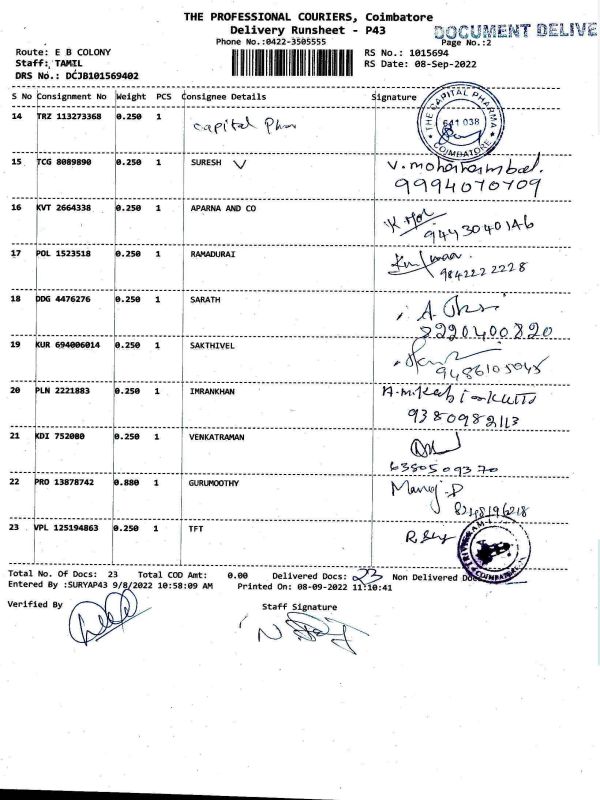 THE PROFESSIONAL COURIERS, Coimbatore
Delivery Runsheet - P43
DOCUMENT DELIVE
Phone No.:0422-3505555
Page No.:2
Route: E B COLONY
RS No.: 1015694
Staff: TAMIL
RS Date: 08-Sep-2022
DRS No.: DCJB101569402
S No Consignment No Weight PCS Consignee Details Signature
14 TRZ 113273368 0.250 1 Capital Phar
THE CAPITAL PHARMA 641 038 COIMBATORE
15 TCG 8089890 0.250 1 SURESH
9994070709
16 KVT 2664338 0.250 1 APARNA AND CO
9443040146
17 POL 1523518 0.250 1 RAMADURAI
9842222228
18 DDG 4476276 0.250 1 SARATH
8220400820
19 KUR 694006014 0.250 1 SAKTHIVEL
9486105045
20 PLN 2221883 0.250 1 IMRANKHAN
9380982113
21 KDI 752080 0.250 1 VENKATRAMAN
6380509370
22 PRO 13878742 0.880 1 GURUMOOTHY Manoj.P
23 VPL 125194863 0.250 1 TFT
COIMBATORE
Total No. Of Docs: 23 Total COD Amt: 0.00 Delivered Docs: 23 Non Delivered Do
Entered By :SURYAP43 9/8/2022 10:58:09 AM Printed On: 08-09-2022 11:10:41
Verified By
Staff Signature